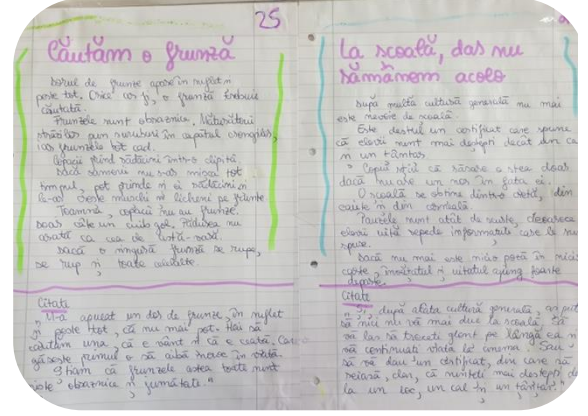 25
Căutăm o frunză
Dorul de frunze apare în suflet și
peste tot. Orice ar fi, o frunză trebuie
căutată.
Frunzele sunt obraznice. Măturătorii
străzilor pun șuruburi în capătul crengilor,
iar frunzele tot cad.
Copacii prind rădăcini într-o clipită.
Dacă oamenii nu s-ar mișca tot
timpul, pot prinde și ei rădăcini și
le-ar crește mușchi și licheni pe frunte.
Toamna, copacii nu au frunze.
Doar câte un cuib gol. Pădurea nu
arată ca cea de
Dacă o singură frunză se rupe,
se rup și toate celelalte.
Citate
„M-a apucat un dor de frunze, în suflet
și peste tot, că nu mai pot. Hai să
căutăm una, că e vânt și că e ceață. Care
găsește primul o să aibă noroc în viață.
Știam că frunzele astea toate sunt
niște obraznice și jumătate."
La școală, dar nu
rămânem acolo
După multă cultură generală nu mai
este nevoie de școală.
Este destul un certificat care spune
că elevii sunt mai deștepți decât din ca
și un țânțar.
Copiii știu că răsare o stea doar
dacă nu are un nor în fața ei.
O școală se obține dintr-o dată, din
cauze și din
Pauzele sunt atât de scurte, deoarece
elevii uită repede informațiile care le
spuse.
Dacă nu mai este nicio poză în nicio
carte, învățatul și uitatul ajung foarte
departe.
Citate
după atâta cultură generală, an putea
să nici nu vă mai duc la școală. Să
vă las să treceți glonț pe lângă ea și
să continuați viața Sau
să vă dau un certificat, din care să
reiasă, clar, că sunteți mai deștepți de
la un loc, un cal și un țânțar."